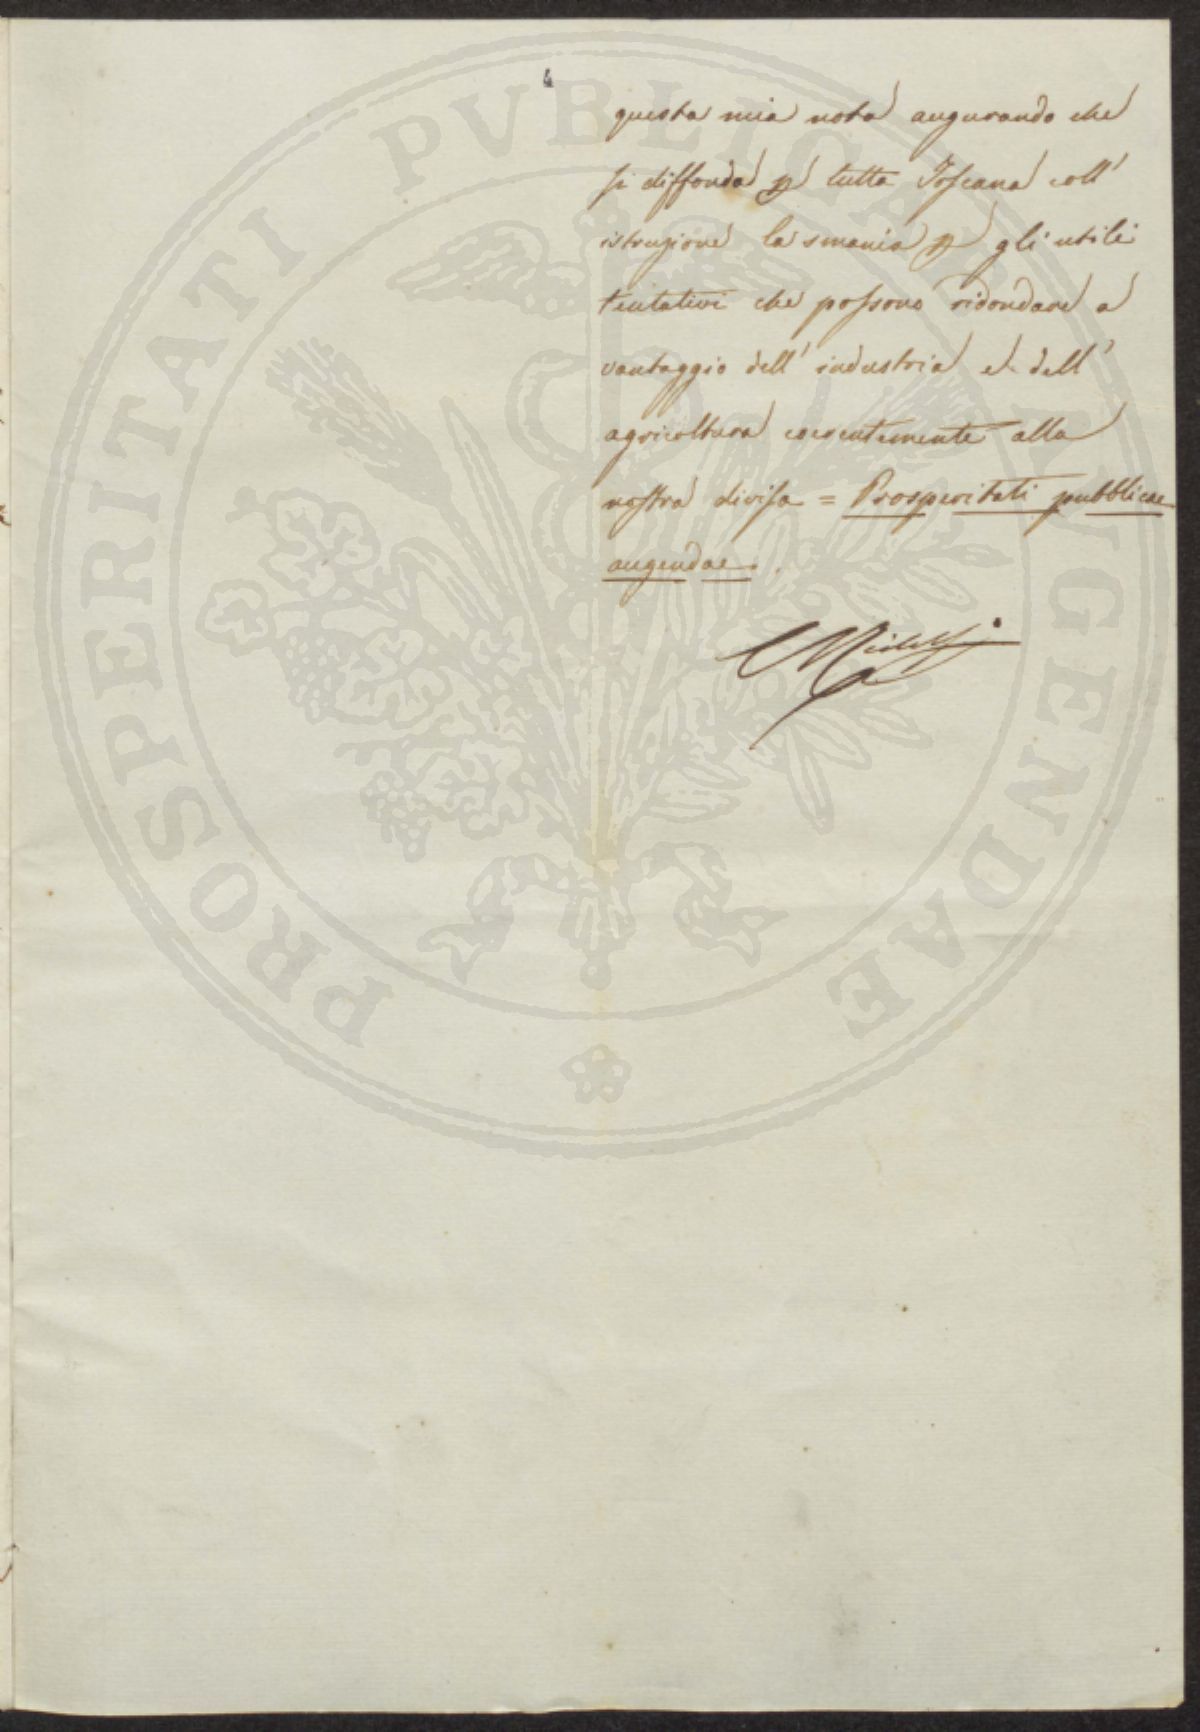 questa mia nota augurando che
si diffonda p tutta Toscana coll'
istruzione la smania p gli utili
tentativi che possono ridondare a
vantaggio dell' industria e dell'
agricoltura coerentemente alla
nostra divisa = Prosperitati pubblicae
augendae.
PROSPERITATI PVBLICAE AVGENDAE